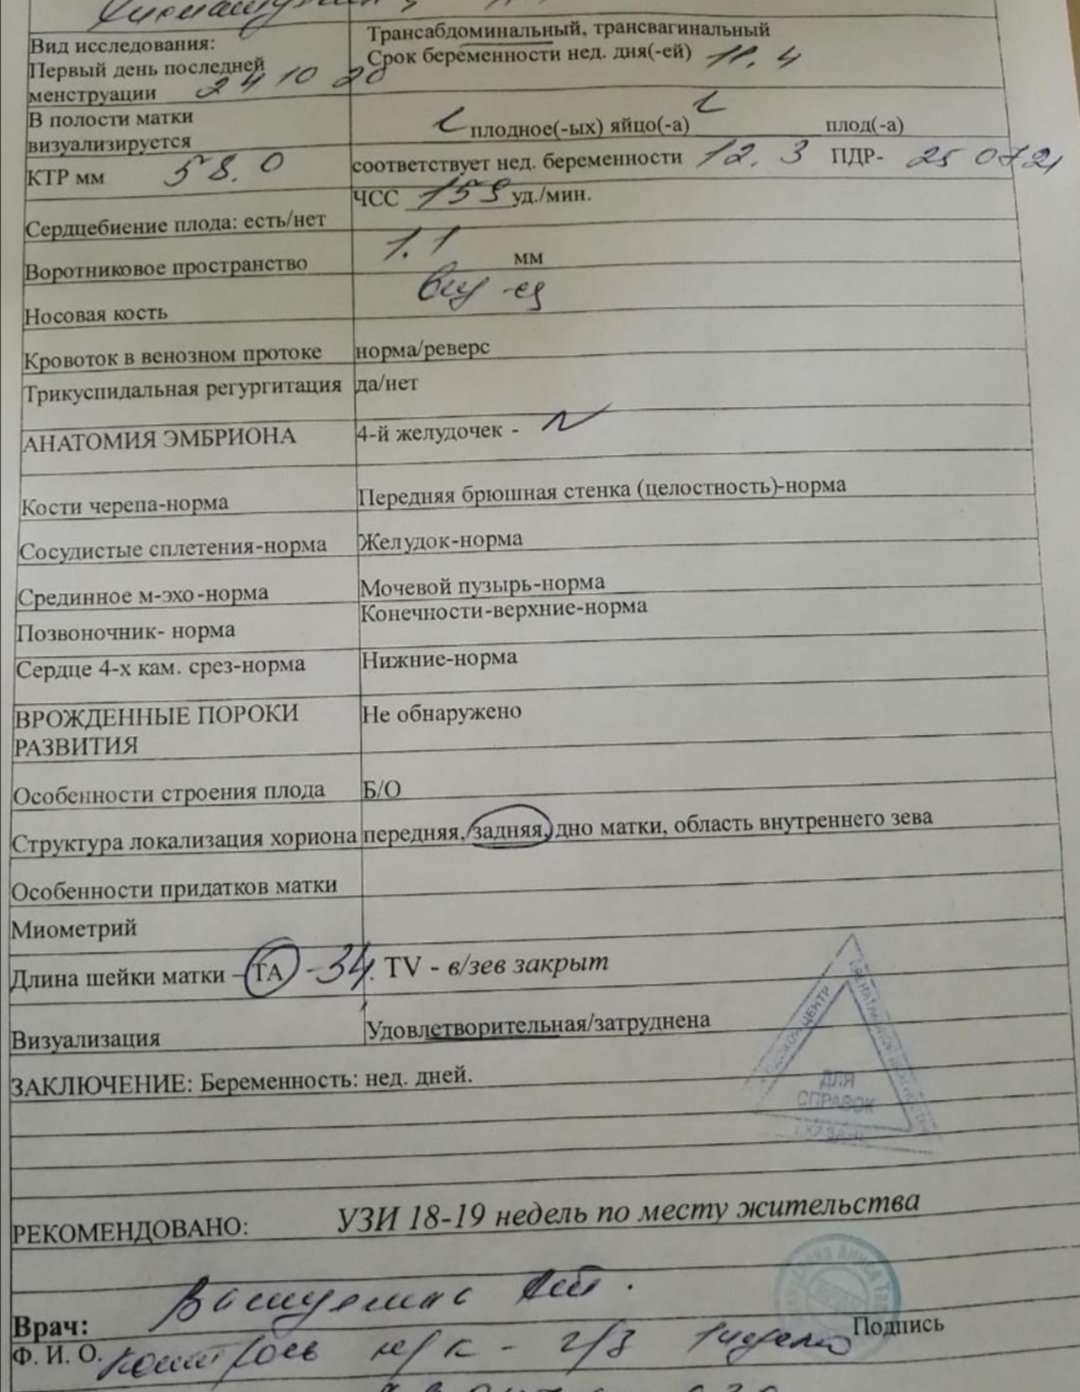 Вид исследования: Трансабдоминальный, трансвагинальный
Первый день последней менструации 24 10 20 Срок беременности нед. дня(-ей) 11.4
В полости матки визуализируется 1 плодное(-ых) яйцо(-а) 1 плод(-а)
КТР мм 58.0 соответствует нед. беременности 12.3 ПДР- 25 07 21
Сердцебиение плода: есть/нет ЧСС 159 уд./мин.
Воротниковое пространство 1.1 мм
Носовая кость виз-ся
Кровоток в венозном протоке норма/реверс
Трикуспидальная регургитация да/нет
АНАТОМИЯ ЭМБРИОНА 4-й желудочек - N
Кости черепа-норма Передняя брюшная стенка (целостность)-норма
Сосудистые сплетения-норма Желудок-норма
Срединное м-эхо-норма Мочевой пузырь-норма
Позвоночник- норма Конечности-верхние-норма
Сердце 4-х кам. срез-норма Нижние-норма
ВРОЖДЕННЫЕ ПОРОКИ Не обнаружено
РАЗВИТИЯ
Особенности строения плода Б/О
Структура локализация хориона передняя, задняя, дно матки, область внутреннего зева
Особенности придатков матки
Миометрий
Длина шейки матки – ТА - 34. TV - в/зев закрыт
Визуализация Удовлетворительная/затруднена
ЗАКЛЮЧЕНИЕ: Беременность: нед. дней.
ДЛЯ
СПРАВОК
РЕКОМЕНДОВАНО: УЗИ 18-19 недель по месту жительства
Врач:
Подпись
Ф. И. О. контроль н/к - ч/з 1 неделю